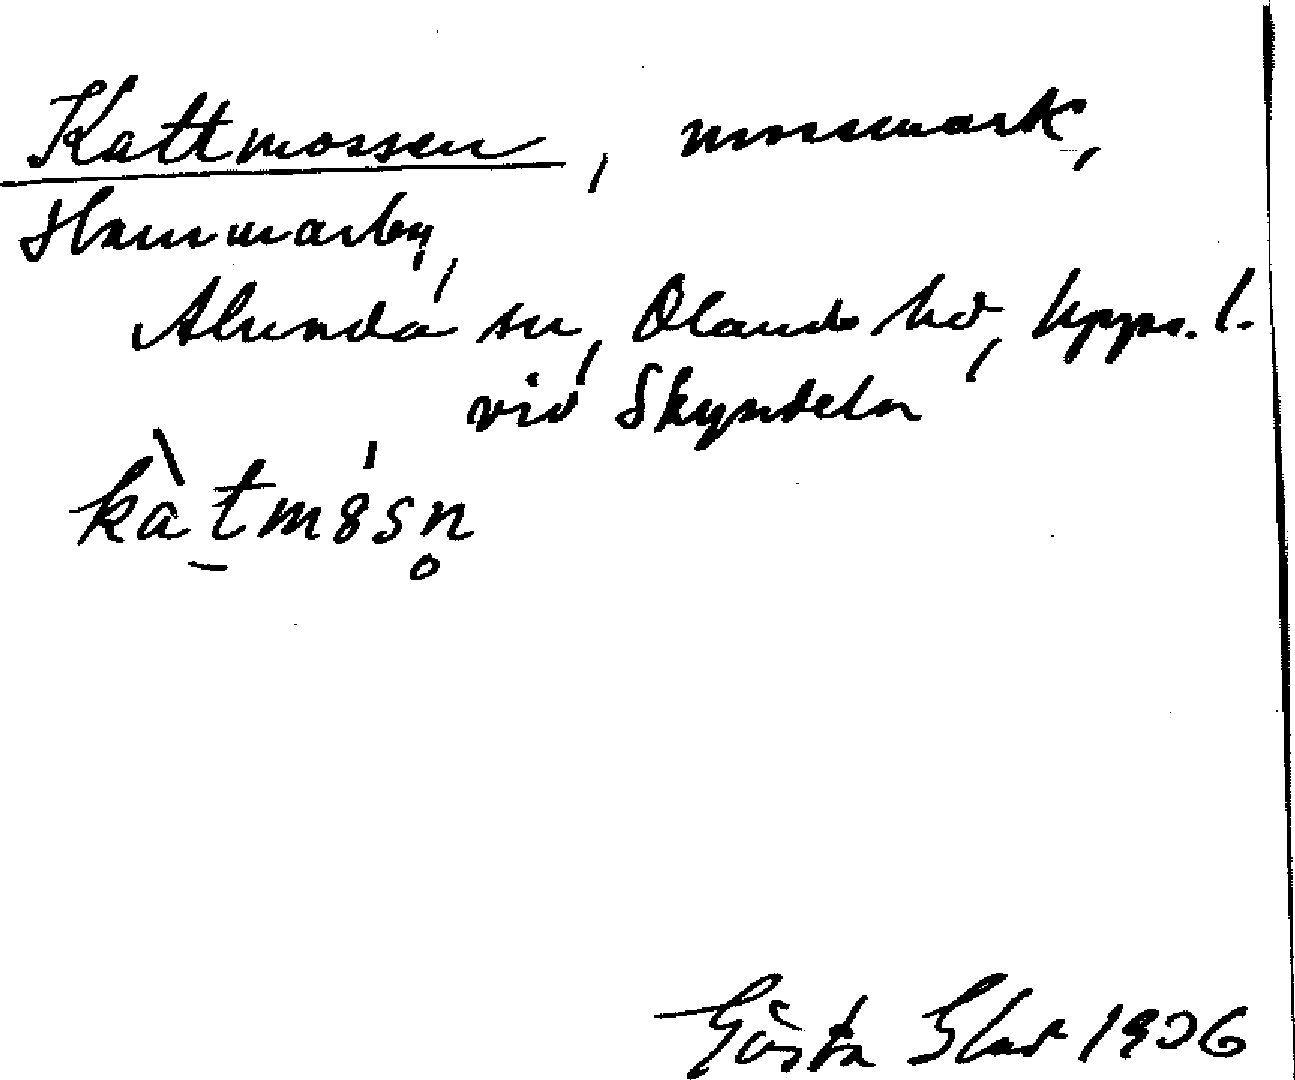 Kattmossen, mossmark,
Hammarby,
Alunda sn, Olands hd, Upps. l.
vid Skyndeln
kàtmȣsn̥
Gösta Elas 1906